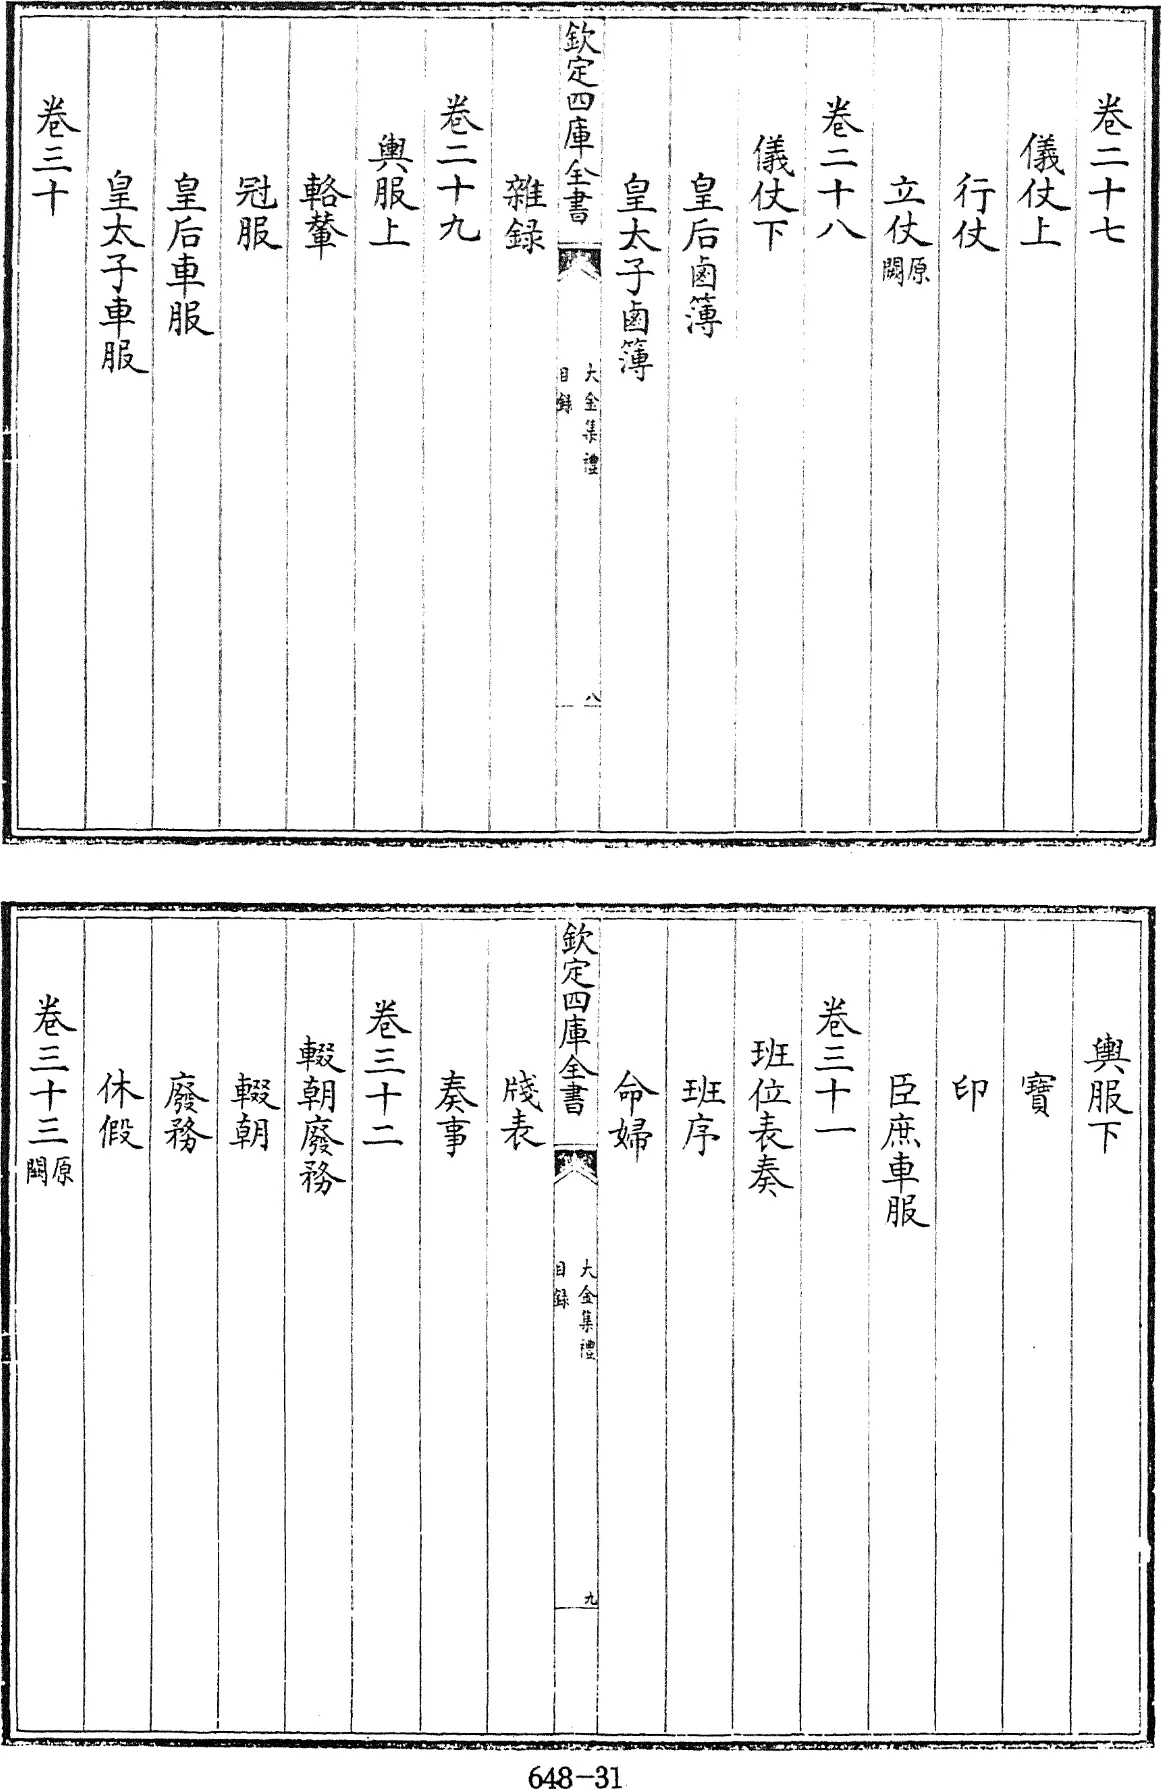 卷二十七
儀仗上
行仗
立仗原闕
卷二十八
儀仗下
皇后鹵簿
皇太子鹵簿
欽定四庫全書
大金集禮
目録
八
雜録
卷二十九
輿服上
輅輦
冠服
皇后車服
皇太子車服
卷三十
輿服下
寶
印
臣庶車服
卷三十一
班位表奏
班序
命婦
欽定四庫全書
大金集禮
目録
九
牋表
奏事
卷三十二
輟朝廢務
輟朝
廢務
休假
卷三十三原闕
648-31